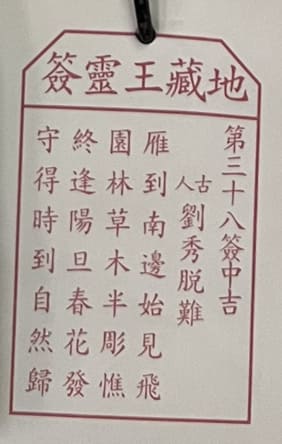 地藏王靈簽
第三十八簽中吉
古人劉秀脱難
雁到南邊始見飛
園林草木半彫憔
終逢陽旦春花發
守得時到自然歸